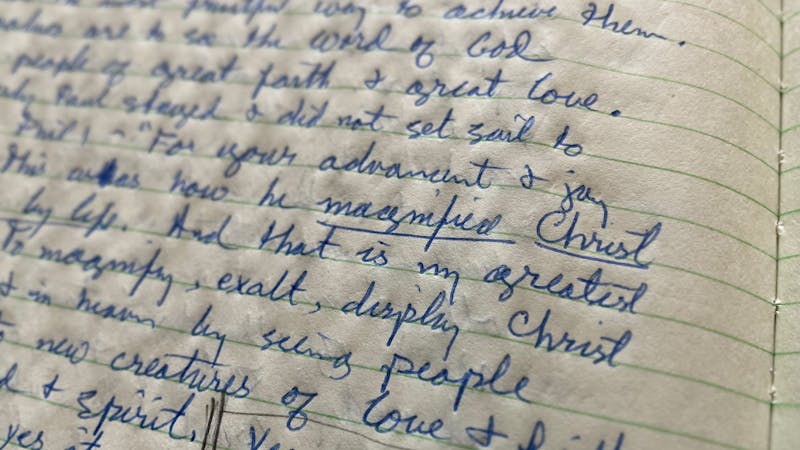 most fruitful way to achieve them.
are to see the word of God
people of great faith & great love.
Paul stayed & did not set sail to
Phil 1 ~ "For your advancment & joy
this was how he magnified Christ
by life. And that is my greatest
To magnify, exalt, display Christ
& in heaven by seeing people
new creatures of love & faith
& Spirit.
yes it